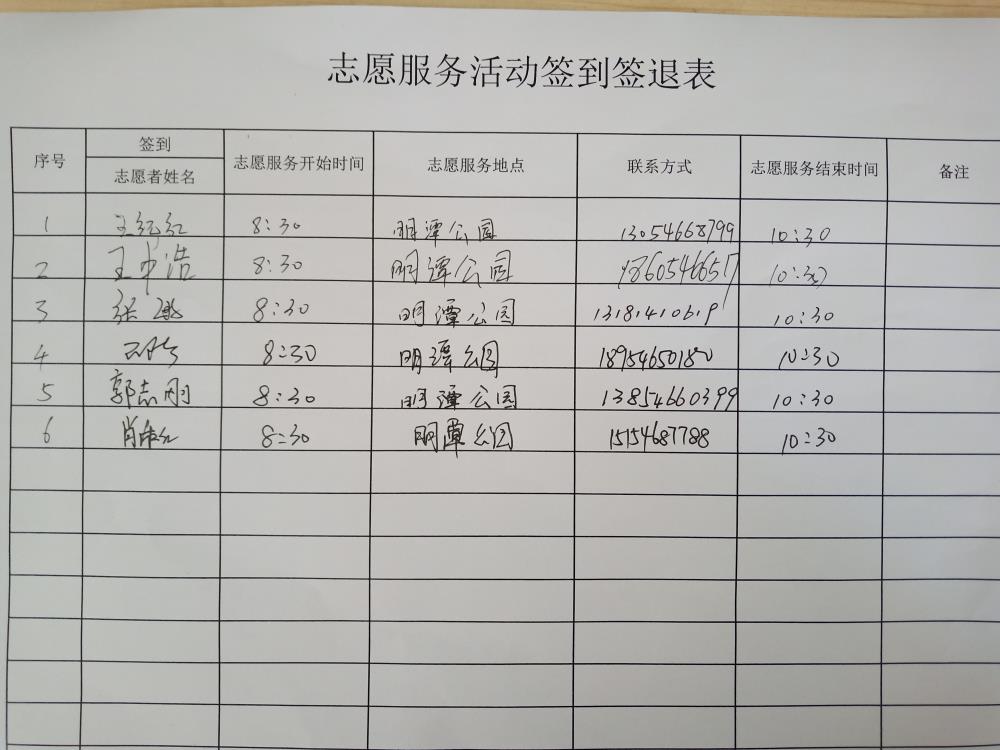 志愿服务活动签到签退表
序号 签到 志愿者姓名 志愿服务开始时间 志愿服务地点 联系方式 志愿服务结束时间 备注
1 王纪红 8:30 明潭公园 13054668799 10:30
2 王中浩 8:30 明潭公园 18605466517 10:30
3 张 8:30 明潭公园 13181410619 10:30
4 8:30 明潭公园 18954650180 10:30
5 郭志刚 8:30 明潭公园 13854660399 10:30
6 肖 8:30 明潭公园 15154687788 10:30